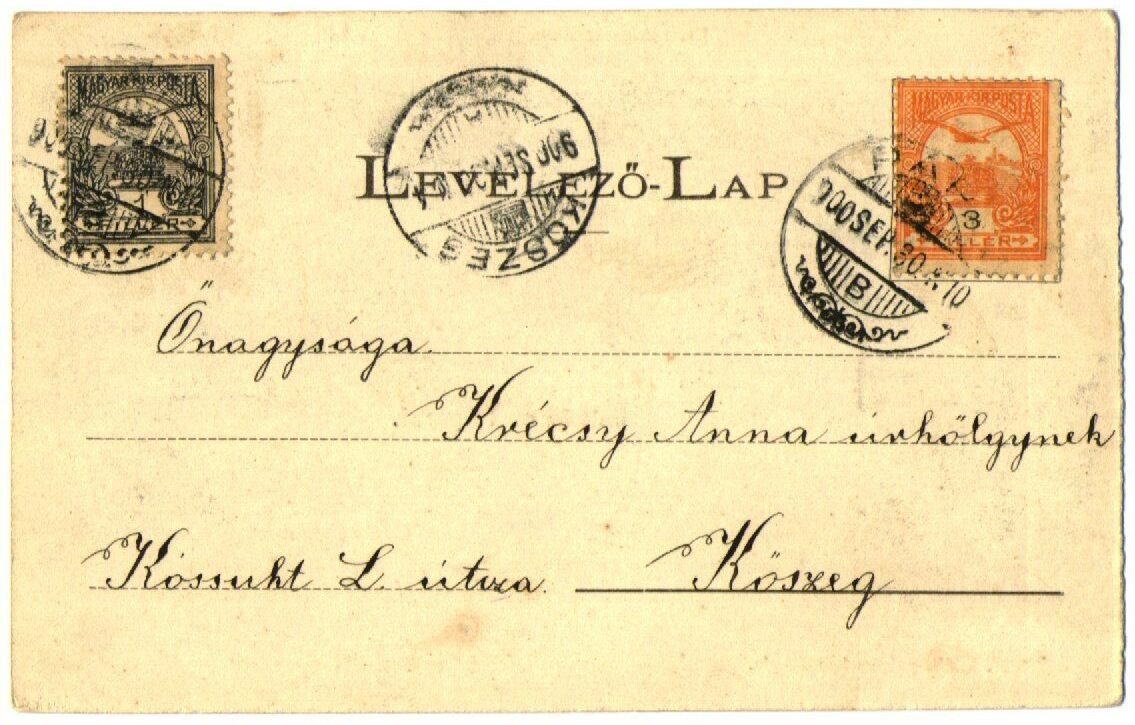 MAGYAR KIR. POSTA
1
FILLÉR
KŐSZEG
900 SEP
LEVELEZŐ-LAP
MAGYAR KIR. POSTA
3
FILLÉR
900 SEP. 30.
B
Őnagysága
Krécsy Anna úrhölgynek
Kossuht L. útcza.
Kőszeg